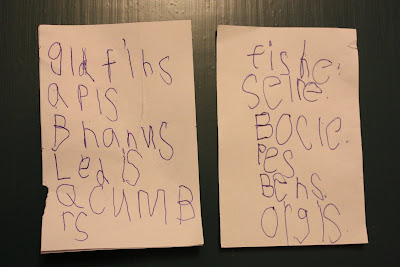 gldfihs
apis
Bhanus
Ledis
acumB
rs
fishe.
selre.
Bocle.
Pes
Bens.
orgis.